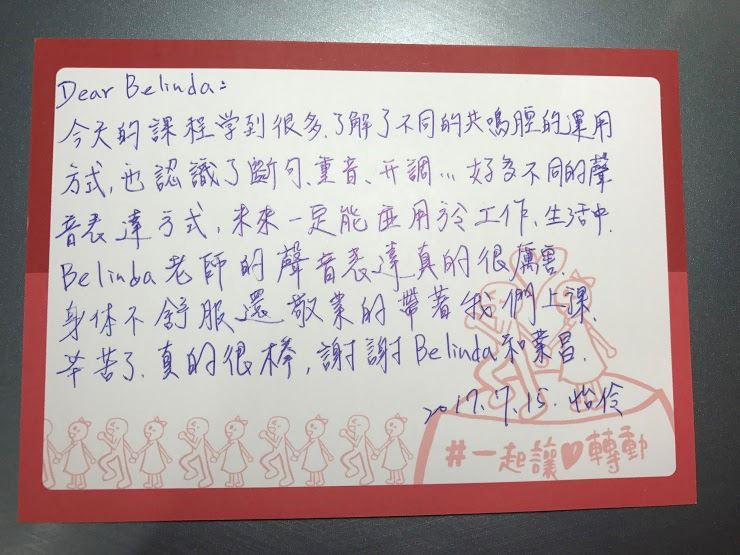 Dear Belinda:
今天的課程学到很多,了解了不同的共鳴腔的運用
方式,也認識了斷句、重音、升調… 好多不同的聲
音表達方式,未來一定能应用於工作、生活中.
Belinda老師的聲音表達真的很厲害.
身体不舒服還敬業的帶著我們上課.
辛苦了.真的很棒,謝謝Belinda和業昌.
2017.7.15. 怡伶
#一起讓♥轉動